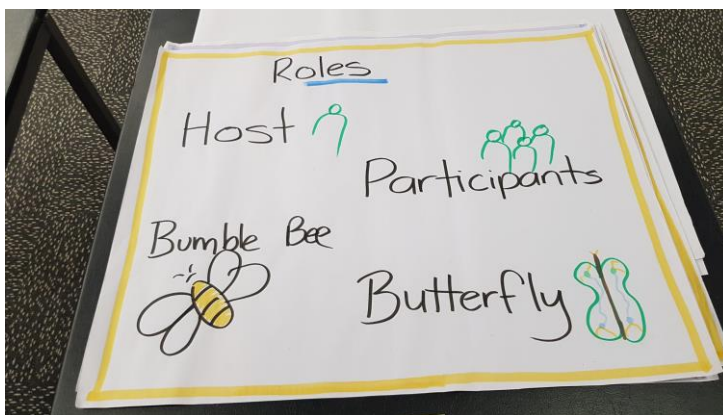 Roles
Host
Participants
Bumble Bee
Butterfly